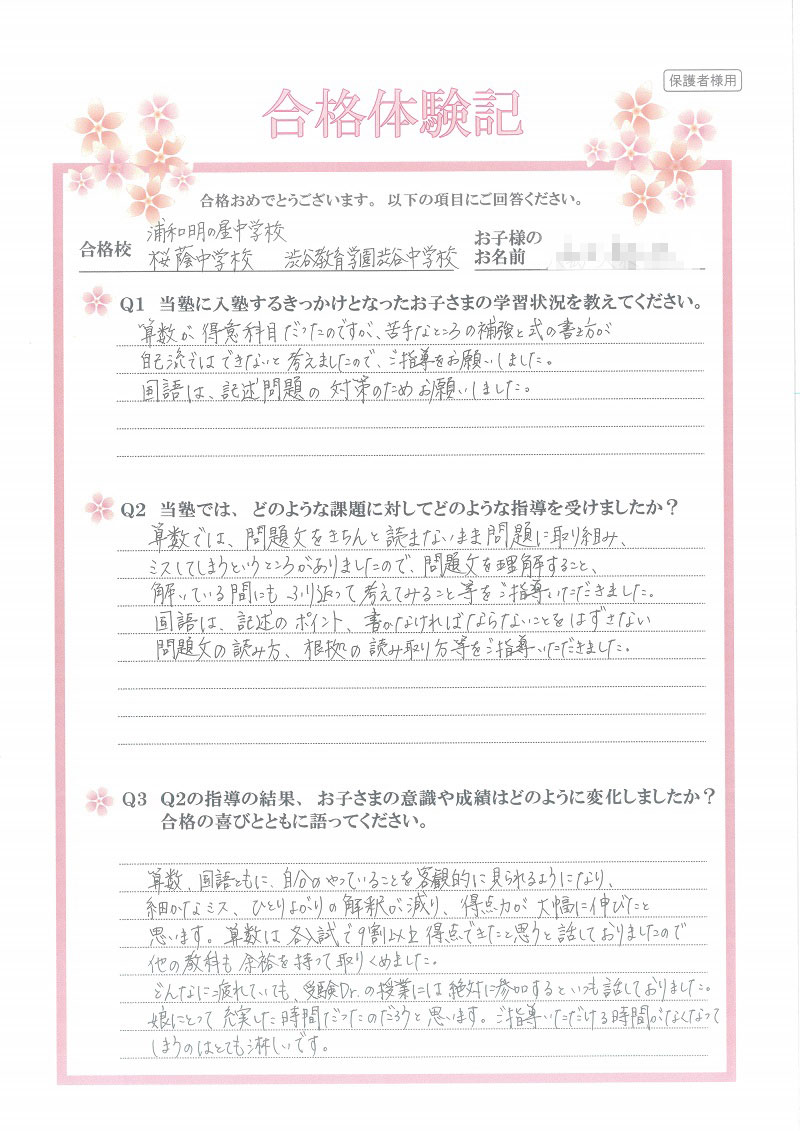 保護者様用
合格体験記
合格おめでとうございます。以下の項目にご回答ください。
合格校
浦和明の星中学校
桜蔭中学校 渋谷教育学園渋谷中学校
お子様の
お名前
Q1 当塾に入塾するきっかけとなったお子さまの学習状況を教えてください。
算数が得意科目だったのですが、苦手なところの補強と式の書き方が
自己流ではできないと考えましたので、ご指導をお願いしました。
国語は、記述問題の対策のためお願いしました。
Q2 当塾では、どのような課題に対してどのような指導を受けましたか？
算数では、問題文をきちんと読まないまま問題に取り組み、
ミスしてしまうというところがありましたので、問題文を理解すること、
解いている間にもふり返って考えてみること等をご指導いただきました。
国語は、記述のポイント、書かなければならないことをはずさない
問題文の読み方、根拠の読み取り方等をご指導いただきました。
Q3 Q2の指導の結果、お子さまの意識や成績はどのように変化しましたか？
合格の喜びとともに語ってください。
算数、国語ともに、自分のやっていることを客観的に見られるようになり、
細かなミス、ひとりよがりの解釈が減り、得点力が大幅に伸びたと
思います。算数は各入試で9割以上得点できたと思うと話しておりましたので
他の教科も余裕を持って取りくめました。
どんなに疲れていても、受験Dr.の授業には絶対に参加するといつも話しておりました。
娘にとって充実した時間だったのだろうと思います。ご指導いただける時間がなくなって
しまうのはとても淋しいです。